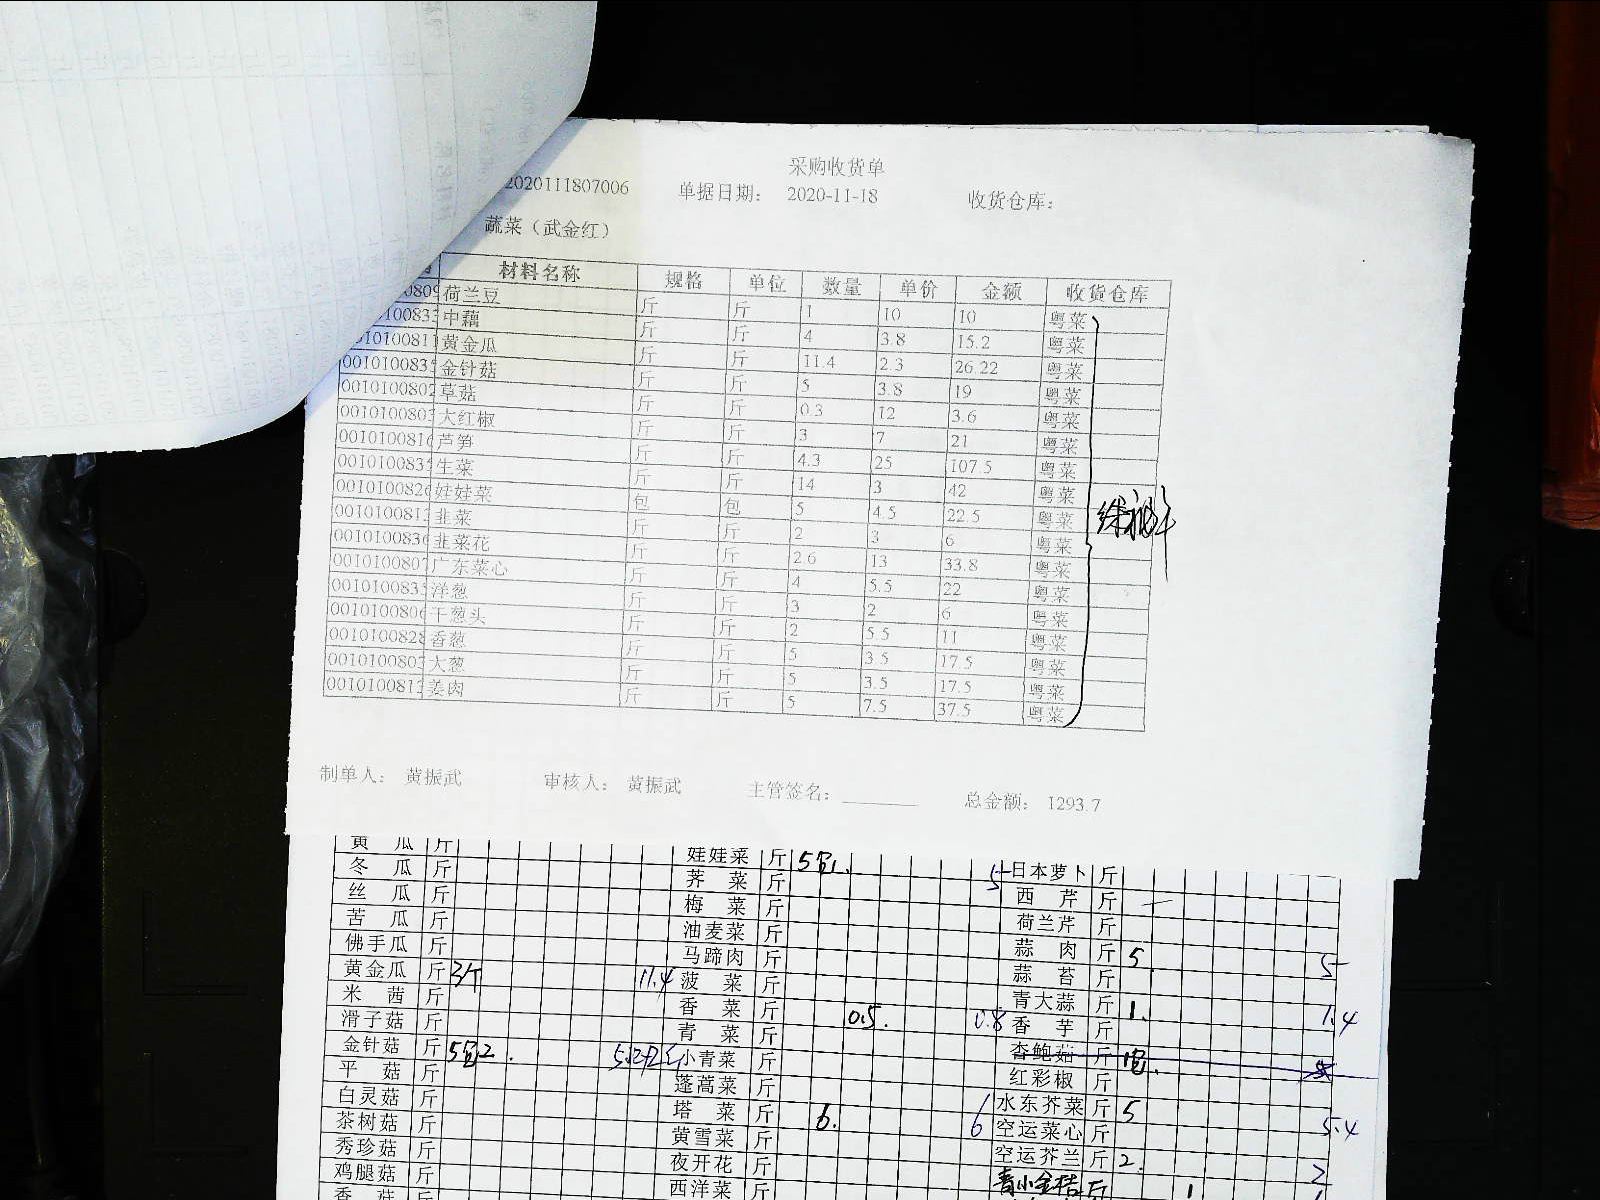 采购收货单
2020111807006 单据日期： 2020-11-18 收货仓库：
蔬菜（武金红）
材料名称 规格 单位 数量 单价 金额 收货仓库
荷兰豆 斤 斤 1 10 10 粤菜
中藕 斤 斤 4 3.8 15.2 粤菜
黄金瓜 斤 斤 11.4 2.3 26.22 粤菜
001010083 金针菇 斤 斤 5 3.8 19 粤菜
0010100802 草菇 斤 斤 0.3 12 3.6 粤菜
001010080 大红椒 斤 斤 3 7 21 粤菜
001010081 芦笋 斤 斤 4.3 25 107.5 粤菜
001010083 生菜 斤 斤 14 3 42 粤菜
001010082 娃娃菜 包 包 5 4.5 22.5 粤菜
001010081 韭菜 斤 斤 2 3 6 粤菜
001010083 韭菜花 斤 斤 2.6 13 33.8 粤菜
001010080 广东菜心 斤 斤 4 5.5 22 粤菜
001010083 洋葱 斤 斤 3 2 6 粤菜
001010080 干葱头 斤 斤 2 5.5 11 粤菜
0010100828 香葱 斤 斤 5 3.5 17.5 粤菜
001010080 大葱 斤 斤 5 3.5 17.5 粤菜
001010081 姜肉 斤 斤 5 7.5 37.5 粤菜
制单人： 黄振武 审核人： 黄振武 主管签名： 总金额： 1293.7
黄瓜 斤 娃娃菜 斤 5包 5 日本萝卜 斤
冬瓜 斤 荠菜 斤 西芹 斤
丝瓜 斤 梅菜 斤 荷兰芹 斤
苦瓜 斤 油麦菜 斤 蒜肉 斤 5 5
佛手瓜 斤 马蹄肉 斤 蒜苔 斤
黄金瓜 斤 3个 11.4 菠菜 斤 青大蒜 斤 1. 1.4
米茜 斤 香菜 斤 0.5. 0.8 香芋 斤
滑子菇 斤 青菜 斤 杏鲍菇 斤 1包.
金针菇 斤 5包 小青菜 斤 红彩椒 斤
平菇 斤 蓬蒿菜 斤 水东芥菜 斤 5 5.4
白灵菇 斤 塔菜 斤 6. 6 空运菜心 斤
茶树菇 斤 黄雪菜 斤 空运芥兰 斤 2. 2
秀珍菇 斤 夜开花 斤 青小金桔 斤 1
鸡腿菇 斤 西洋菜 斤
香菇 斤